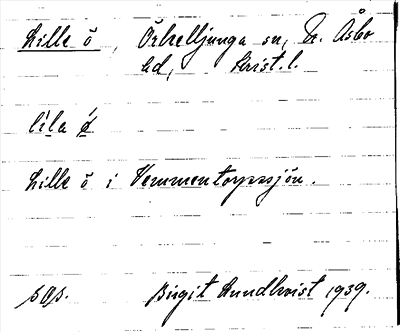 Lille ö, Örkelljunga sn, N. Åsbo
hd, Krist. l.
lila ø
Lille ö i Vemmentorpasjön.
sap. Birgit Lundkvist 1939.